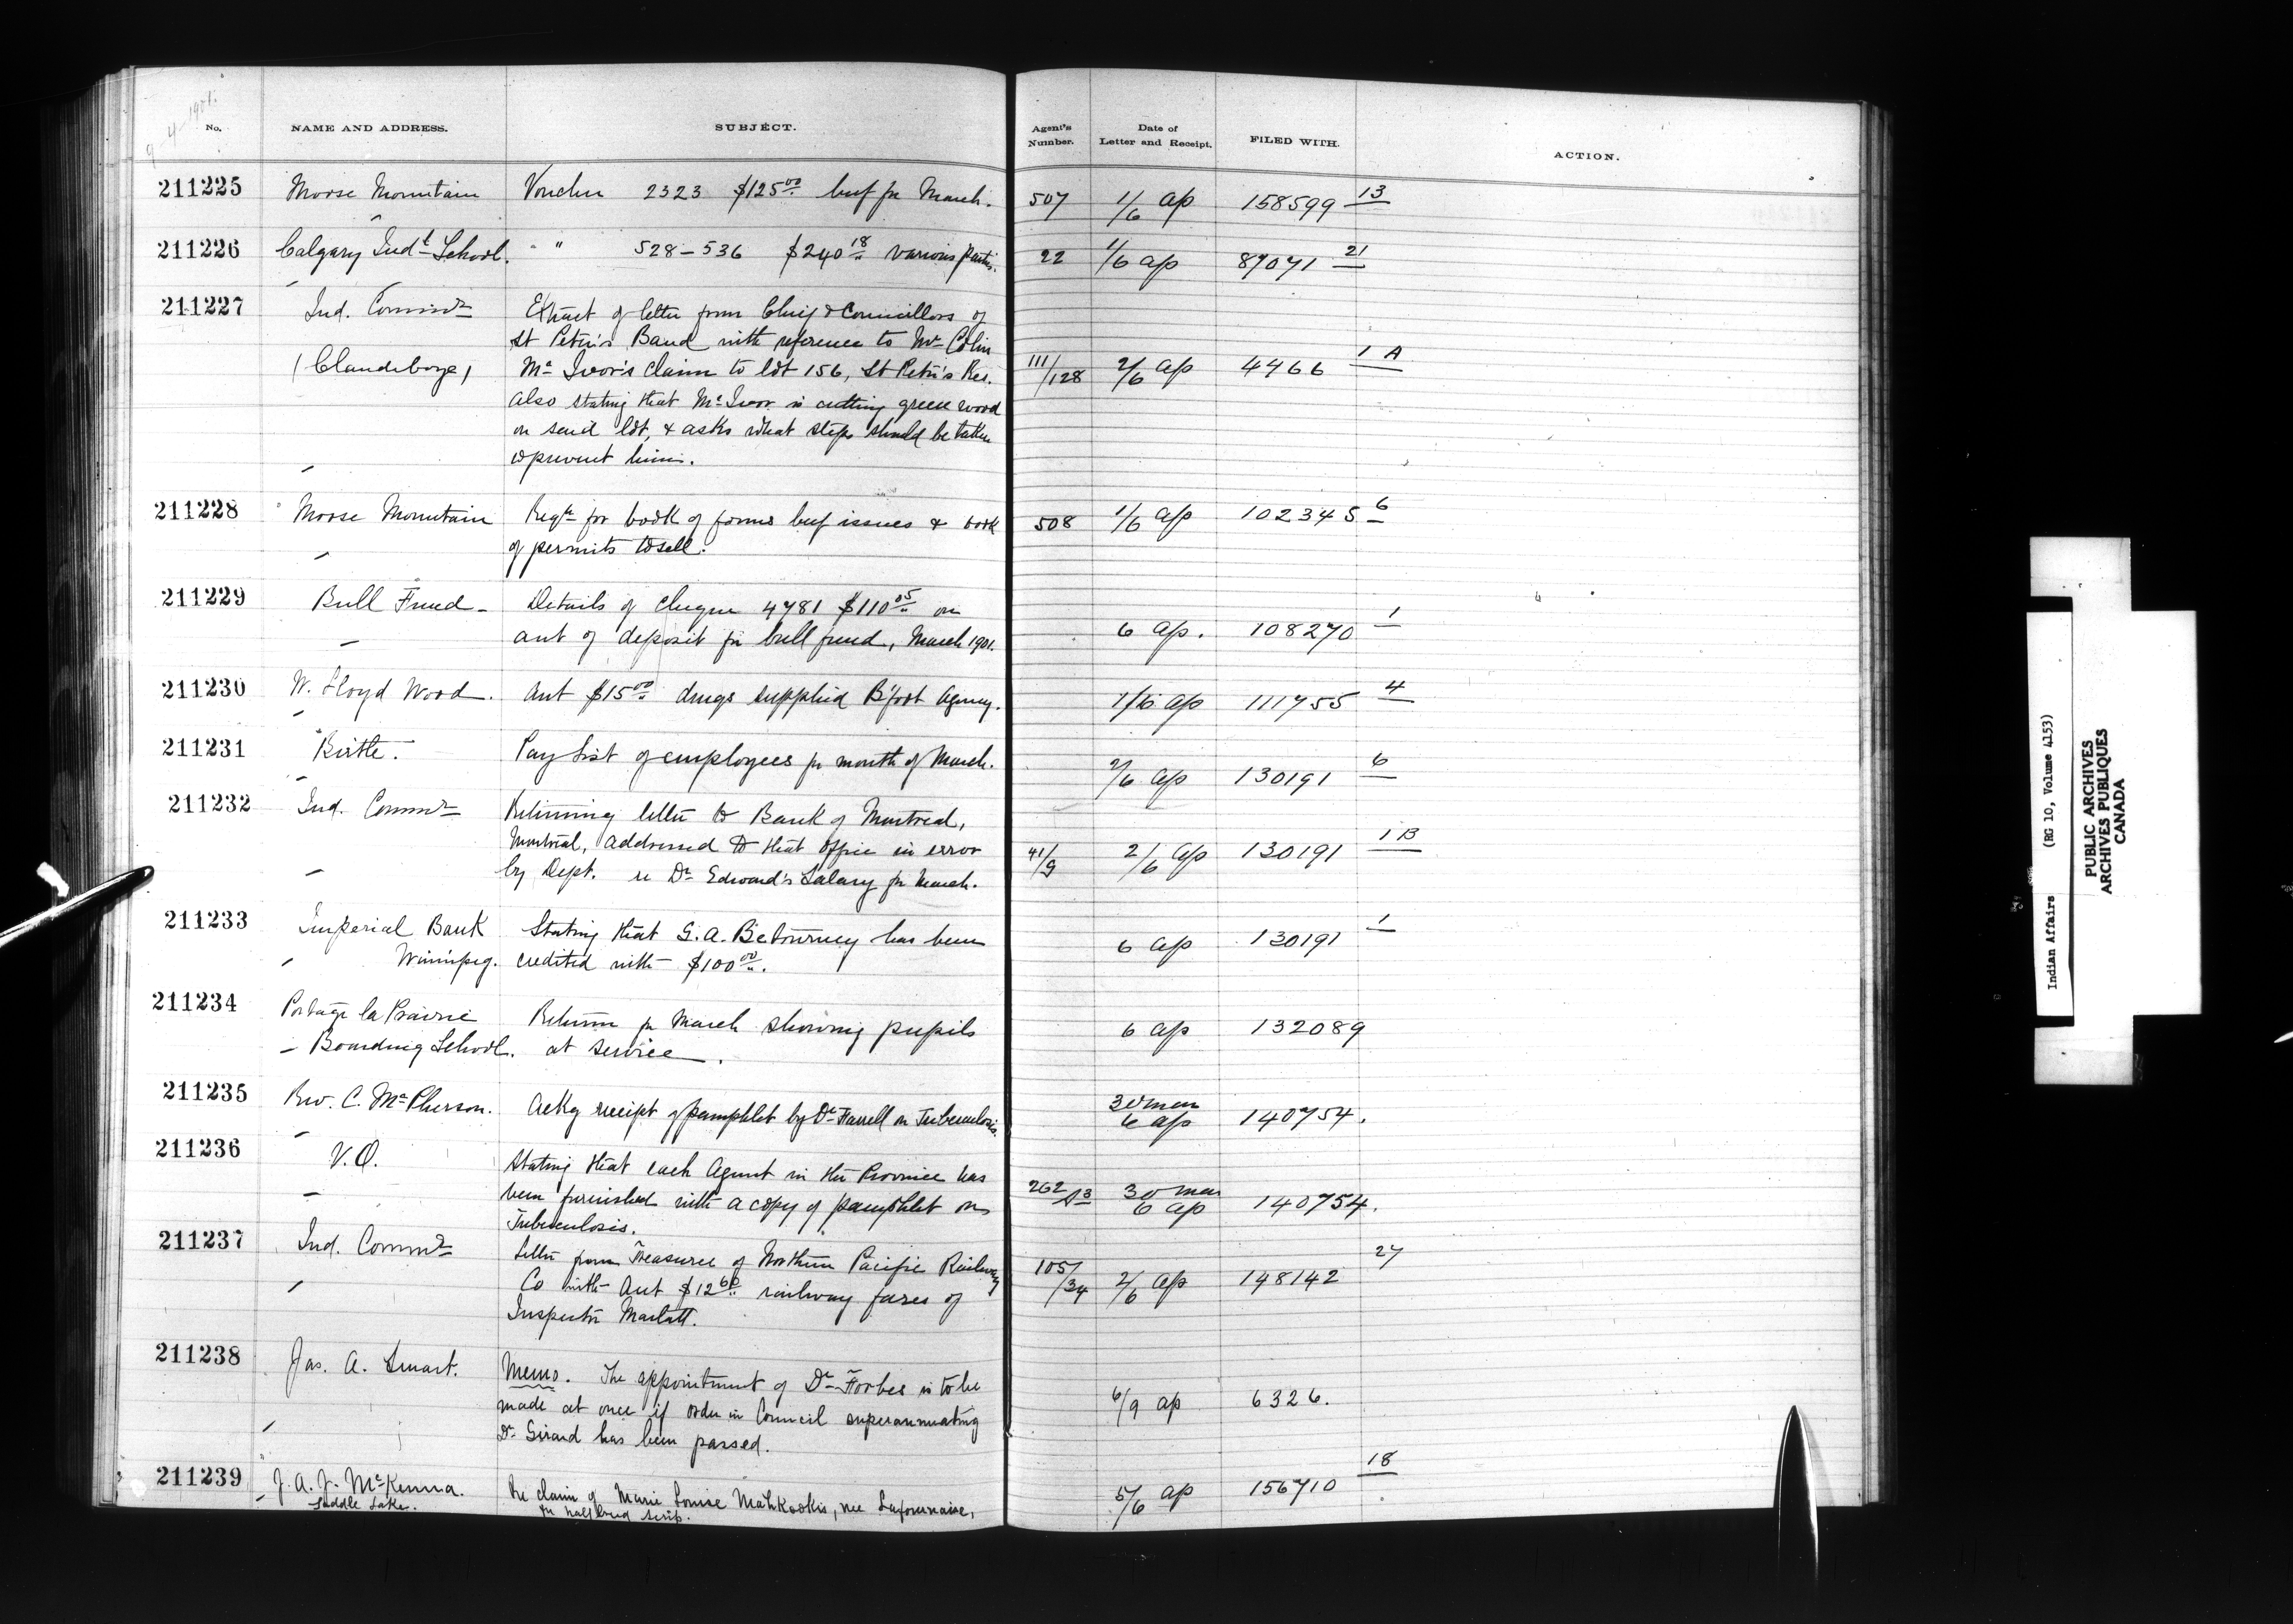 9-4-1901.
No. NAME AND ADDRESS. SUBJECT. Agent's Number. Date of Letter and Receipt. FILED WITH. ACTION.
211225 Moose Mountain Voucher 2323 $125.00 beef for March. 507 1/6 ap 158599 13
211226 Calgary Indl School. " " 528-536 $240.18 various parties. 22 1/6 ap 87071 21
211227 Ind. Commr Extract of letter from Chief & Councillors of
St Peter's Band with reference to Mr Colin
(Clandeboye) Mc Ivor's claim to lot 156, St Peter's Res. 111/128 2/6 ap 4466 1 A
also stating that McIvor is cutting green wood
on said lot, & asks what steps should be taken
to prevent him.
211228 Moose Mountain Reqn for book of forms beef issues & book 508 1/6 ap 102345 6
of permits to sell.
211229 Bull Fund - Details of cheque 4781 $110.05 on
acct of deposit for bull fund, March 1901. 6 ap. 108270 1
211230 W. Lloyd Wood. Acct $15.00 drugs supplied B'foot Agency. 1/6 ap 111755 4
211231 Birtle. Pay List of employees for month of March. 2/6 ap 130191 6
211232 Ind. Commr Returning letter to Bank of Montreal,
Montreal, addressed to that office in error 41/9 2/6 ap 130191 1 B
by Dept. re Dr Edward's Salary for March.
211233 Imperial Bank Stating that G. A. Betourney has been 6 ap 130191 1
Winnipeg. credited with $100.00.
211234 Portage la Prairie Return for March showing pupils 6 ap 132089
Boarding School. at service.
211235 Rev. C. McPherson. Ackg receipt of pamphlet by Dr Farrell on Tuberculosis. 30 mar 6 ap 140754.
211236 V.O. Stating that each Agent in the Province has
been furnished with a copy of pamphlet on 262 30 mar 6 ap 140754.
Tuberculosis.
211237 Ind. Commr Letter from Treasurer of Northern Pacific Railway
Co with Acct $12.60 railway fares of 105/34 2/6 ap 148142 27
Inspector Marlatt.
211238 Jas. A. Smart. Memo. The appointment of Dr Forbes is to be
made at once if Order in Council superannuating 6/9 ap 6326.
Dr Girard has been passed.
211239 J. A. J. McKenna. Re claim of Marie Louise Mahkookis, nee Lafournaise, 5/6 ap 156710 18
Saddle Lake. for half breed scrip.
Indian Affairs (RG 10, Volume 4153)
PUBLIC ARCHIVES
ARCHIVES PUBLIQUES
CANADA